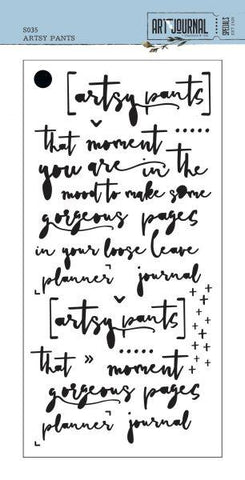 S035
ARTSY PANTS
ART JOURNAL
SPECIALS
[artsy pants]
that moment
you are in the
mood to make some
gorgeous pages
in your loose leave
planner journal
[artsy pants]
that » moment
gorgeous pages
planner journal